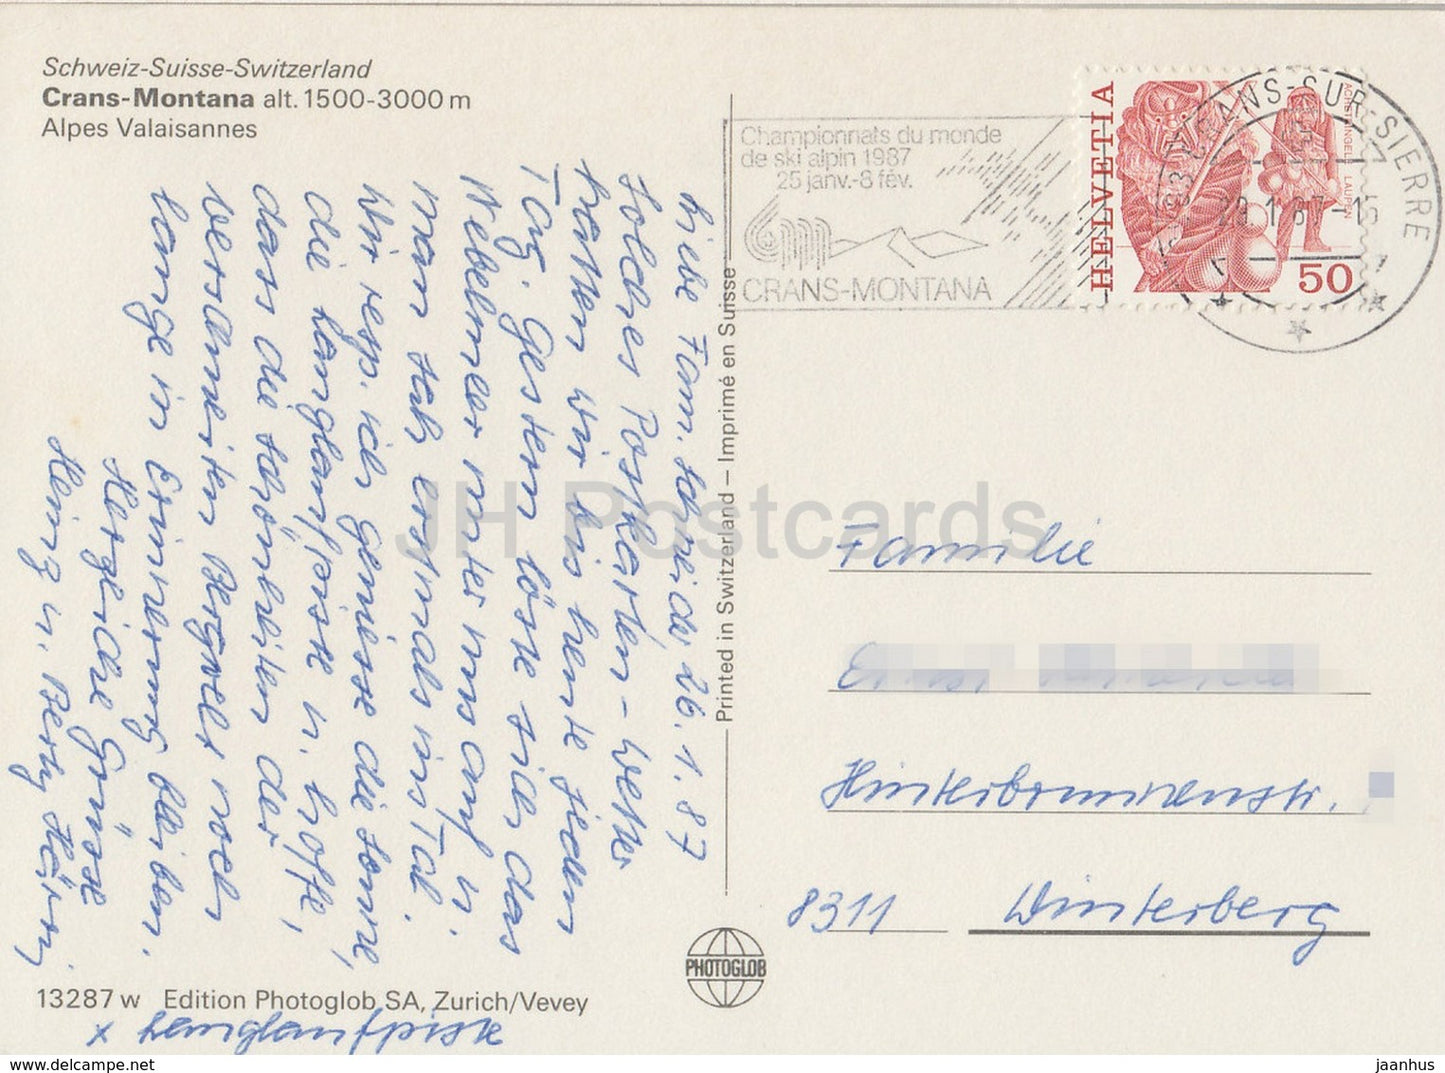 Schweiz-Suisse-Switzerland
Crans-Montana alt. 1500-3000 m
Alpes Valaisannes
Liebe Fam. Schneider 26.1.87
Solches Postkarten-Wetter
hatten wir bis heute jeden
Tag. Gestern löste sich das
Nebelmeer unter uns auf u.
man sah erstmals ins Tal.
Wir resp. ich geniesse die Sonne,
die Langlaufpiste u. hoffe,
dass die Schönheiten der
versammelten Bergwelt noch
lange in Erinnerung bleiben.
Herzliche Grüsse
Heinz u. Berty
13287 w Edition Photoglob SA, Zurich/Vevey
x Langlaufpiste
Printed in Switzerland – Imprimé en Suisse
PHOTOGLOB
Championnats du monde
de ski alpin 1987
25 janv.-8 fév.
CRANS-MONTANA
HELVETIA
ACHETRINGELE LAUPEN
50
CRANS-SUR-SIERRE
Familie
Hinterbrunnenstr.
8311 Winterberg
JH Postcards
jaanhus
www.delcampe.net